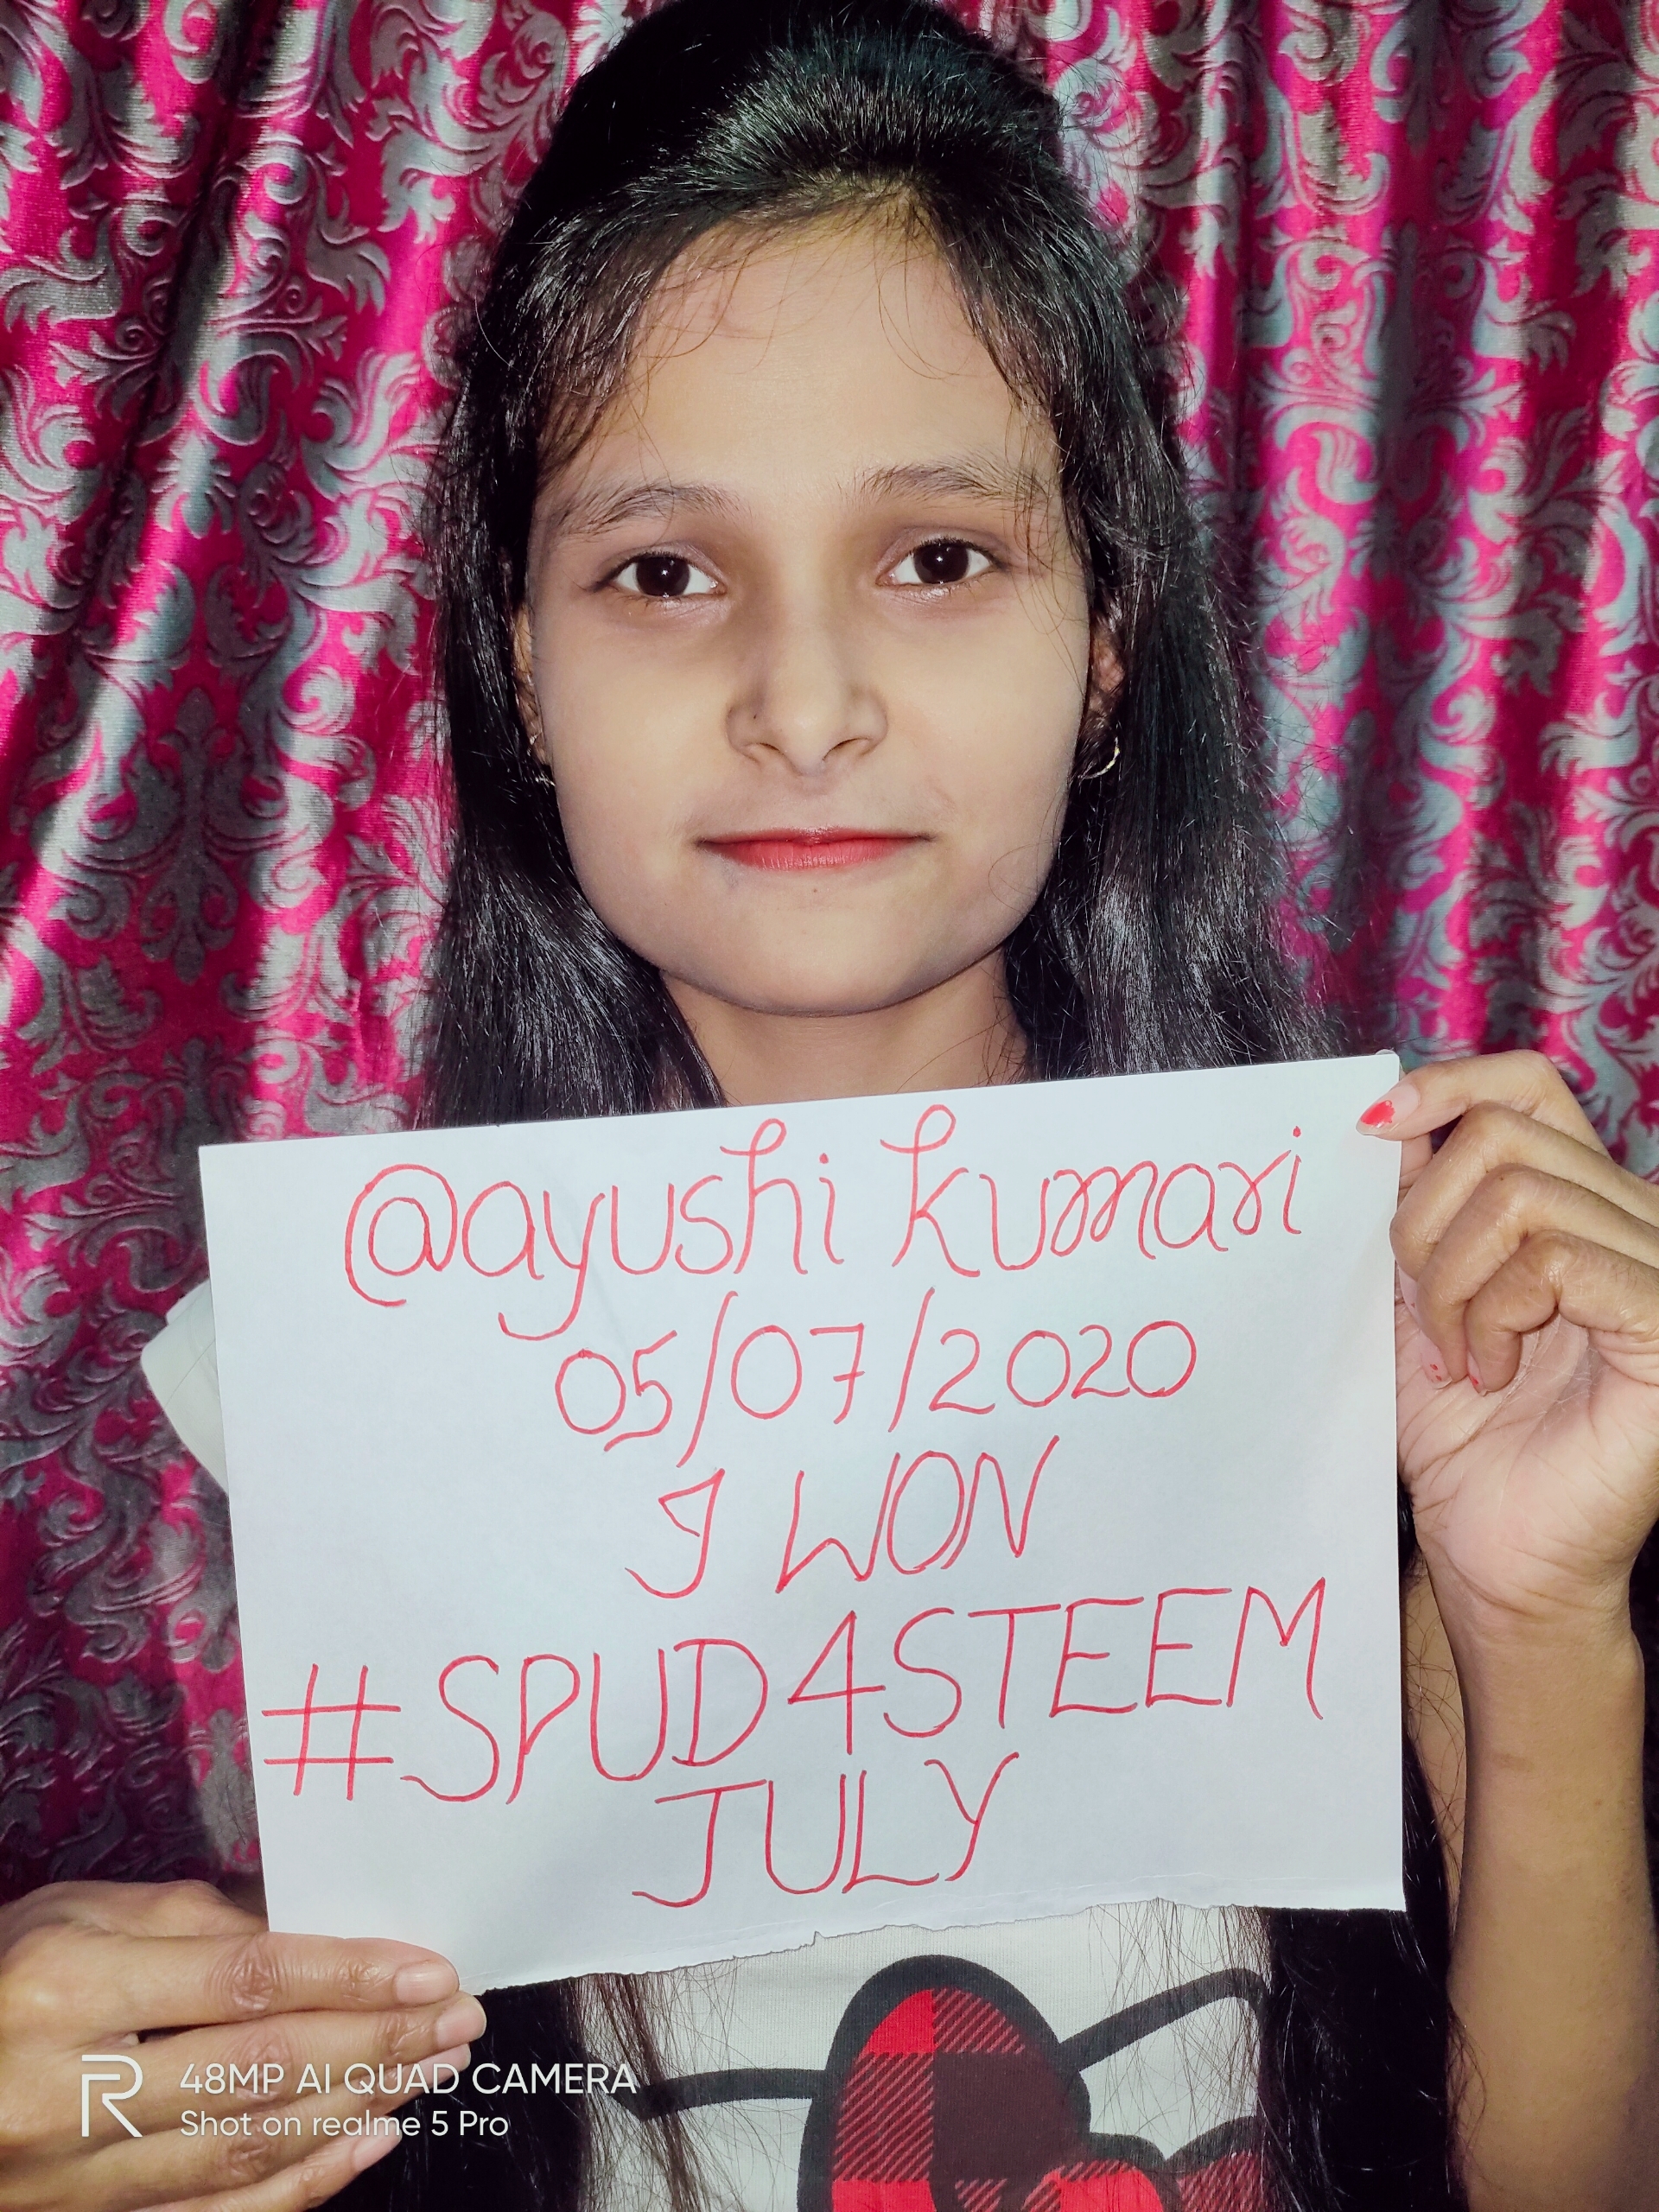 @ayushi kumari
05/07/2020
I WON
#SPUD4STEEM
JULY
R 48MP AI QUAD CAMERA
Shot on realme 5 Pro